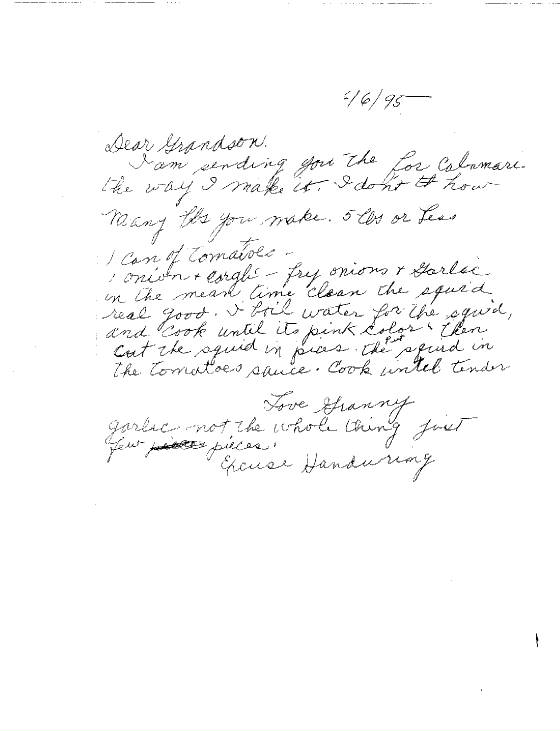 4/6/95
Dear Grandson.
I am sending you the for Calamare.
the way I make it. I dont how
many lbs you make. 5 lbs or less
1 Can of tomatoes -
1 onion + - fry onions + Garlic
in the mean time clean the squid
real good. I boil water for the squid,
and cook until its pink color. then
cut the squid in pices. the put squid in
the tomatoes sauce. Cook until tender
Love Granny
garlic not the whole thing just
few pieces.
Excuse